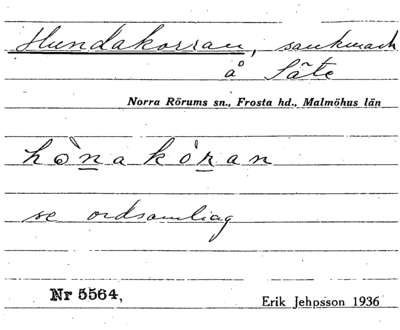 Hundakorran, sankmark
å Säte
Norra Rörums sn., Frosta hd., Malmöhus län
hònakóran
se ordsamling
Nr 5564,
Erik Jehpsson 1936